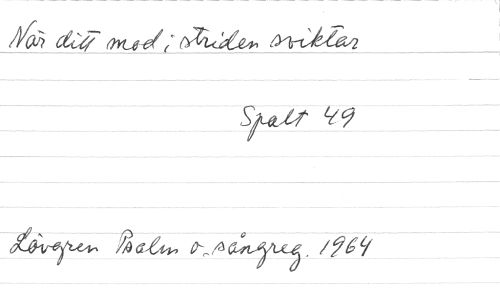 När ditt mod i striden sviktar
Spalt 49
Lövgren Psalm o. sångreg. 1964